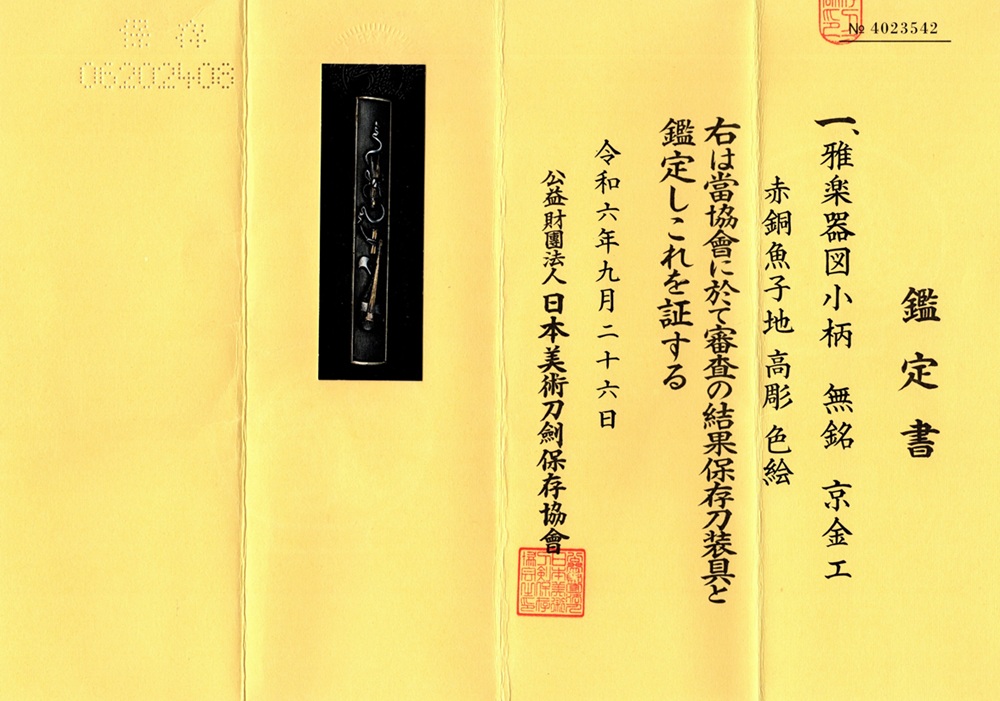 № 4023542
鑑定書
一、雅楽器図小柄 無銘 京金工
赤銅魚子地 高彫 色絵
右は當協會に於て審査の結果保存刀装具と
鑑定しこれを証する
令和六年九月二十六日
公益財團法人 日本美術刀劍保存協會
保存
06202408